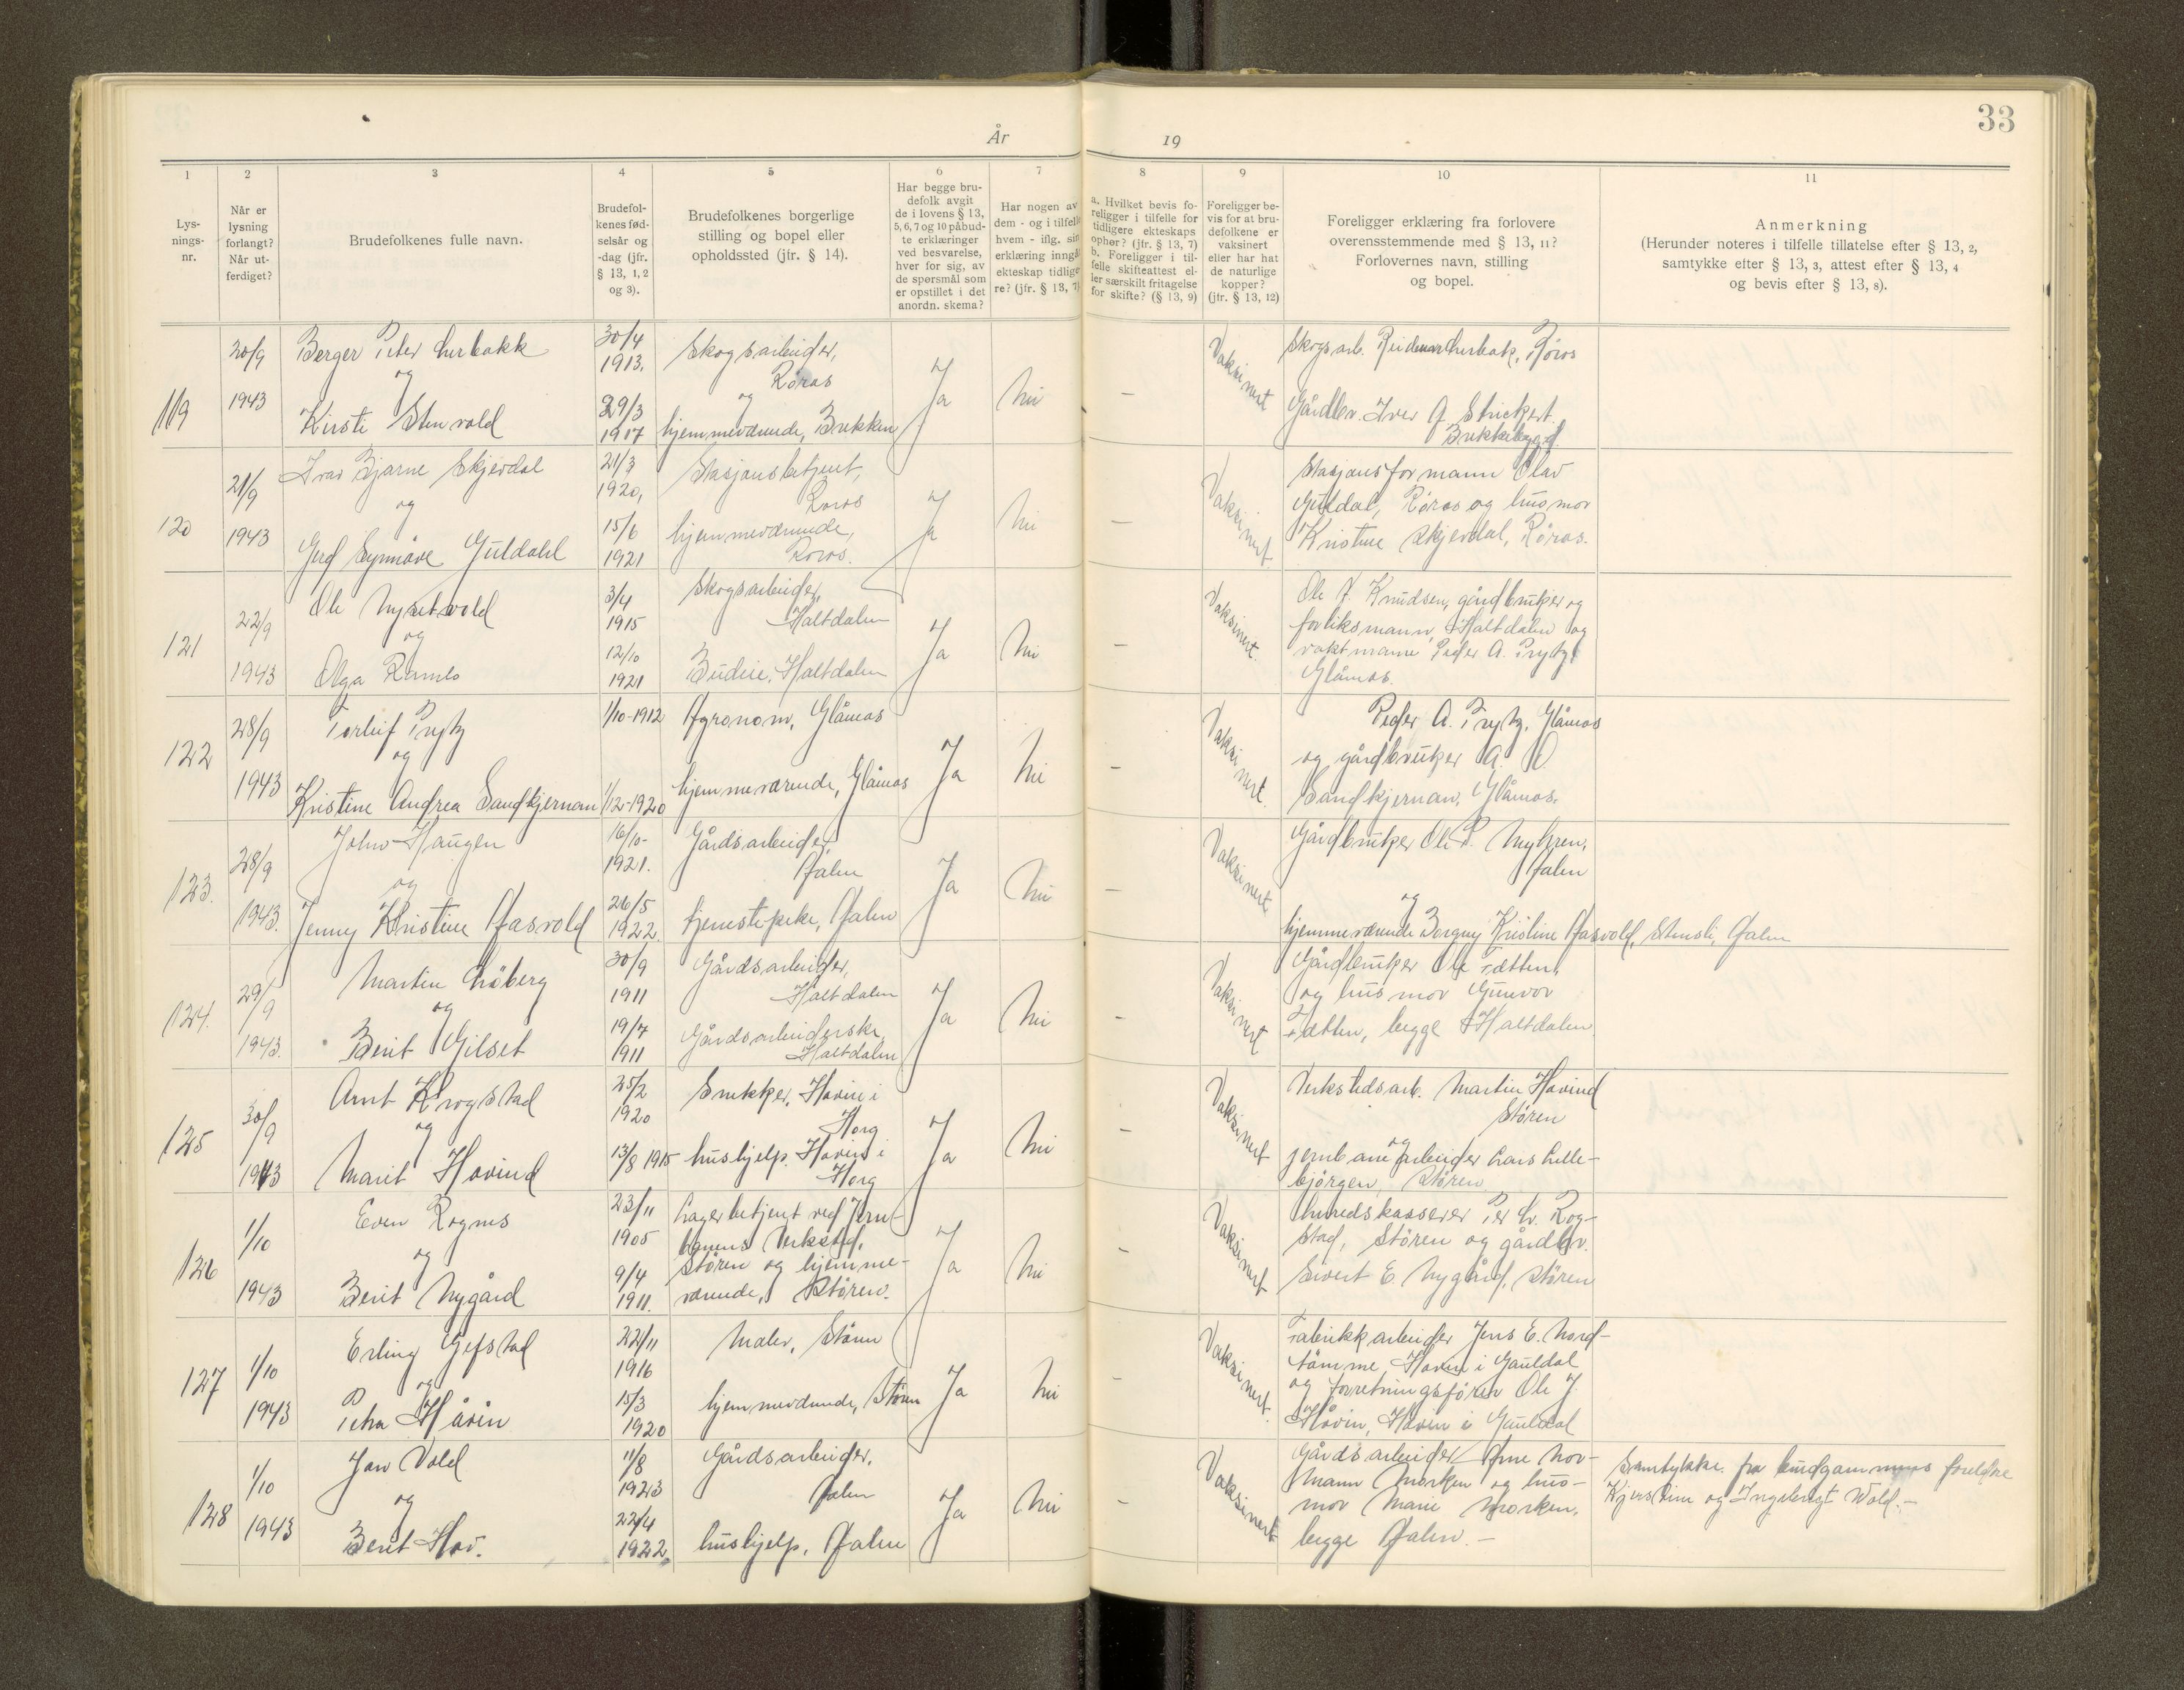 33
År 19
1
Lys-
nings-
nr.
2
Når er
lysning
forlangt?
Når ut-
ferdiget?
3
Brudefolkenes fulle navn.
4
Brudefol-
kenes fød-
selsår og
-dag (jfr.
§ 13, 1, 2
og 3).
5
Brudefolkenes borgerlige
stilling og bopel eller
opholdssted (jfr. § 14).
6
Har begge bru-
defolk avgit
de i lovens § 13,
5, 6, 7 og 10 påbud-
te erklæringer
ved besvarelse,
hver for sig, av
de spørsmål som
er opstillet i det
anordn. skema?
7
Har nogen av
dem - og i tilfelle
hvem - iflg. sin
erklæring inngå
ekteskap tidlige
re? (jfr. § 13, 7)
8
a. Hvilket bevis fo-
religger i tilfelle for
tidligere ekteskaps
ophør? (jfr. § 13, 7)
b. Foreligger i til-
felle skifteattest el-
ler særskilt fritagelse
for skifte? (§ 13, 9)
9
Foreligger be-
vis for at bru-
defolkene er
vaksinert
eller har hat
de naturlige
kopper?
(jfr. § 13, 12)
10
Foreligger erklæring fra forlovere
overensstemmende med § 13, 11?
Forlovernes navn, stilling
og bopel.
11
Anmerkning
(Herunder noteres i tilfelle tillatelse efter § 13, 2,
samtykke efter § 13, 3, attest efter § 13, 4
og bevis efter § 13, 8).
119
20/9
1943
Berger Peter Lurbakk
og
Kirsti Stenvold
30/4
1913.
29/3
1917
Skogsarbeider,
Røros
og
hjemmeværende, Brekken
Ja
Nei
-
Vaksinert
Skogsarb. Reidmar Lurbak, Røros
Gårdbr. Iver A. Strickert
Brekkebygd
120
21/9
1943
Ivar Bjarne Skjevdal
og
Gerd Synnøve Guldahl
21/3
1920,
15/6
1921
Stasjonsbetjent,
Røros
hjemmeværende,
Røros.
Ja
Nei
-
Vaksinert
Stasjonsformann Olav
Guldal, Røros og husmor
Kristine Skjevdal, Røros.
121
22/9
1943
Ole Nyrøtvold
og
Olga Ramlo
3/4
1915
12/10
1921
Skogsarbeider,
Haltdalen
Budeie, Haltdalen
Ja
Nei
-
Vaksinert.
Ole J. Knudsen, gårdbruker og
forliksmann, Haltdalen og
vaktmann Peder A. Prytz,
Glåmos.
122
28/9
1943
Torleif Prytz
og
Kristine Andrea Sandkjernan
1/10-1912
1/12-1920
Agronom, Glåmos
hjemmeværende, Glåmos
Ja
Nei
-
Vaksinert.
Peder A. Prytz, Glåmos
og gårdbruker A. O.
Sandkjernan, Glåmos.
123.
28/9
1943.
John Haugen
og
Jenny Kristine Aasvold
16/10-
1921.
26/5
1922.
Gårdsarbeider,
Ålen
tjenestepike, Ålen
Ja
Nei
-
Vaksinert
Gårdbruker Ole P. Nyhren,
Ålen
og
hjemmeværende Borgny Kristine Aasvold, Stensli, Ålen
124.
29/9
1943.
Martin Løberg
og
Berit Gilset
30/9
1911
19/7
1911
Gårdsarbeider,
Haltdalen
Gårdsarbeiderske,
Haltdalen
Ja
Nei
-
Vaksinert
Gårdbruker Ole Tætten,
og husmor Gunvor
Tætten, begge Haltdalen
125
30/9
1943
Arnt Krogstad
og
Marit Hovind
25/2
1920
13/8 1915
Snekker, Hovin i
Horg
hushjelp. Hovin i
Horg
Ja
Nei
-
Vaksinert
Verkstedsarb. Martin Hovind
Støren
og
jernbanearbeider Lars Lille-
bjørgen, Støren
126
1/10
1943
Even Rognes
og
Berit Nygård
23/11
1905
9/4
1911.
Lagerbetjent ved Jern-
banens Verksted,
Støren og hjemme-
værende, Støren.
Ja
Nei
-
Vaksinert
Herredskasserer Per Lv. Rog-
stad, Støren og gårdbr.
Sivert E Nygård, Støren
127
1/10
1943
Erling Gefstad
og
Petra Håvin
22/11
1916
15/3
1920
Maler, Støren
hjemmeværende, Støren
Ja
Nei
-
Vaksinert.
Fabrikkarbeider Jens E. Nord-
tømme, Hovin i Gauldal
og forretningsfører Ole J.
Håvin, Hovin i Gauldal
128
1/10
1943
Jon Vold
og
Berit Hov.
11/8
1923
22/4
1922.
Gårdsarbeider,
Ålen
hushjelp, Ålen
Ja
Nei
-
Vaksinert
Gårdsarbeider Arne Nor-
mann Morken og hus-
mor Marie Morken,
begge Ålen. -
Samtykke fra brudgommens foreldre
Kjerstine og Ingebrigt Wold. -